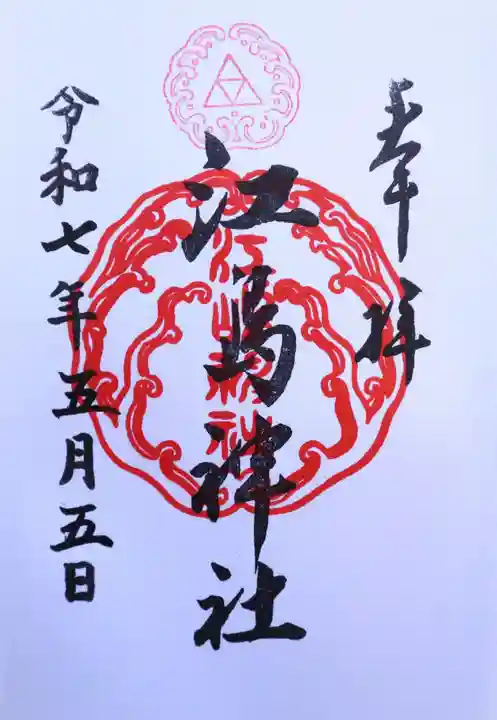 奉拝
江島神社
江島神社
令和七年五月五日